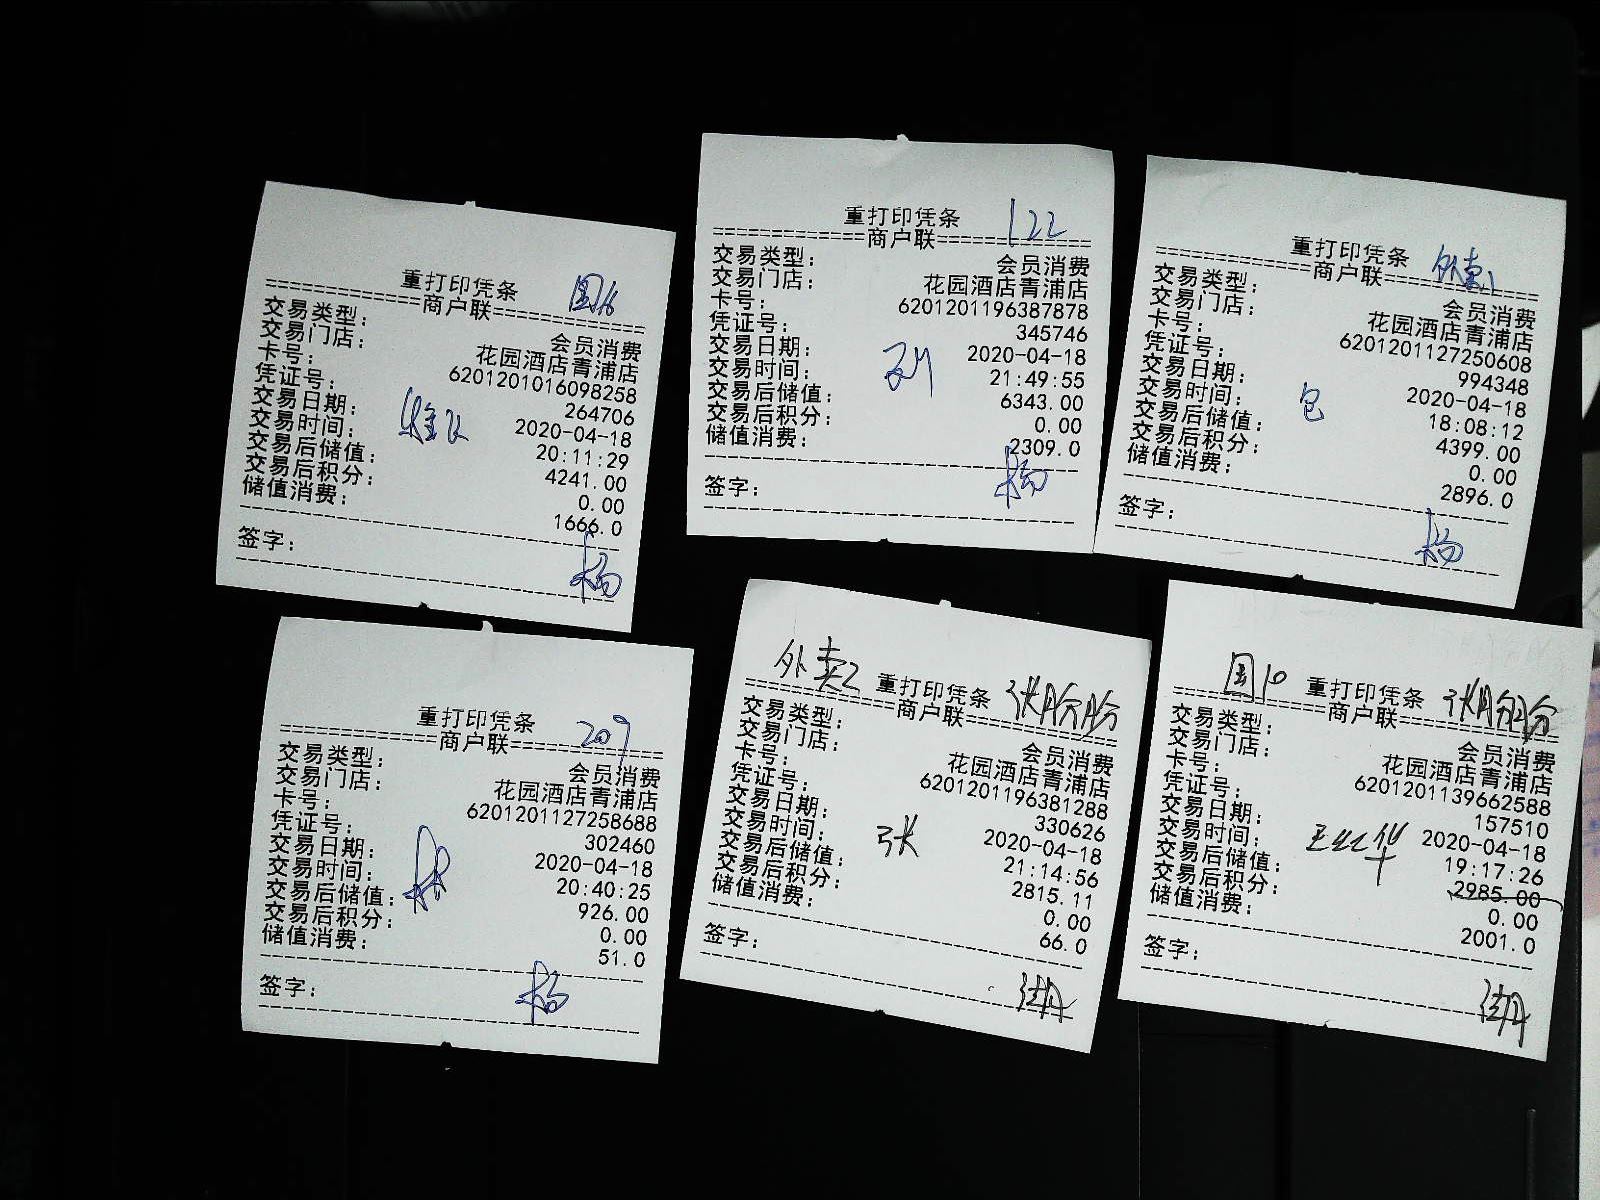 重打印凭条
============商户联============
交易类型：
会员消费
交易门店：
花园酒店青浦店
卡号：
6201201016098258
凭证号：
264706
交易日期：
2020-04-18
交易时间：
20:11:29
交易后储值：
4241.00
交易后积分：
0.00
储值消费：
1666.0
签字：
杨
122
重打印凭条
============商户联============
交易类型：
会员消费
交易门店：
花园酒店青浦店
卡号：
6201201196387878
凭证号：
345746
交易日期：
2020-04-18
交易时间：
21:49:55
交易后储值：
6343.00
交易后积分：
0.00
储值消费：
2309.0
签字：
杨
重打印凭条
外卖1
============商户联============
交易类型：
会员消费
交易门店：
花园酒店青浦店
卡号：
6201201127250608
凭证号：
994348
交易日期：
2020-04-18
交易时间：
18:08:12
包
交易后储值：
4399.00
交易后积分：
0.00
储值消费：
2896.0
签字：
杨
重打印凭条
209
============商户联============
交易类型：
会员消费
交易门店：
花园酒店青浦店
卡号：
6201201127258688
凭证号：
302460
交易日期：
2020-04-18
交易时间：
20:40:25
交易后储值：
926.00
交易后积分：
0.00
储值消费：
51.0
签字：
杨
外卖2
重打印凭条
============商户联============
交易类型：
会员消费
交易门店：
花园酒店青浦店
卡号：
6201201196381288
凭证号：
330626
交易日期：
2020-04-18
交易时间：
21:14:56
张
交易后储值：
2815.11
交易后积分：
0.00
储值消费：
66.0
签字：
重打印凭条
============商户联============
交易类型：
会员消费
交易门店：
花园酒店青浦店
卡号：
6201201139662588
凭证号：
157510
交易日期：
2020-04-18
交易时间：
19:17:26
交易后储值：
2985.00
交易后积分：
0.00
储值消费：
2001.0
签字：